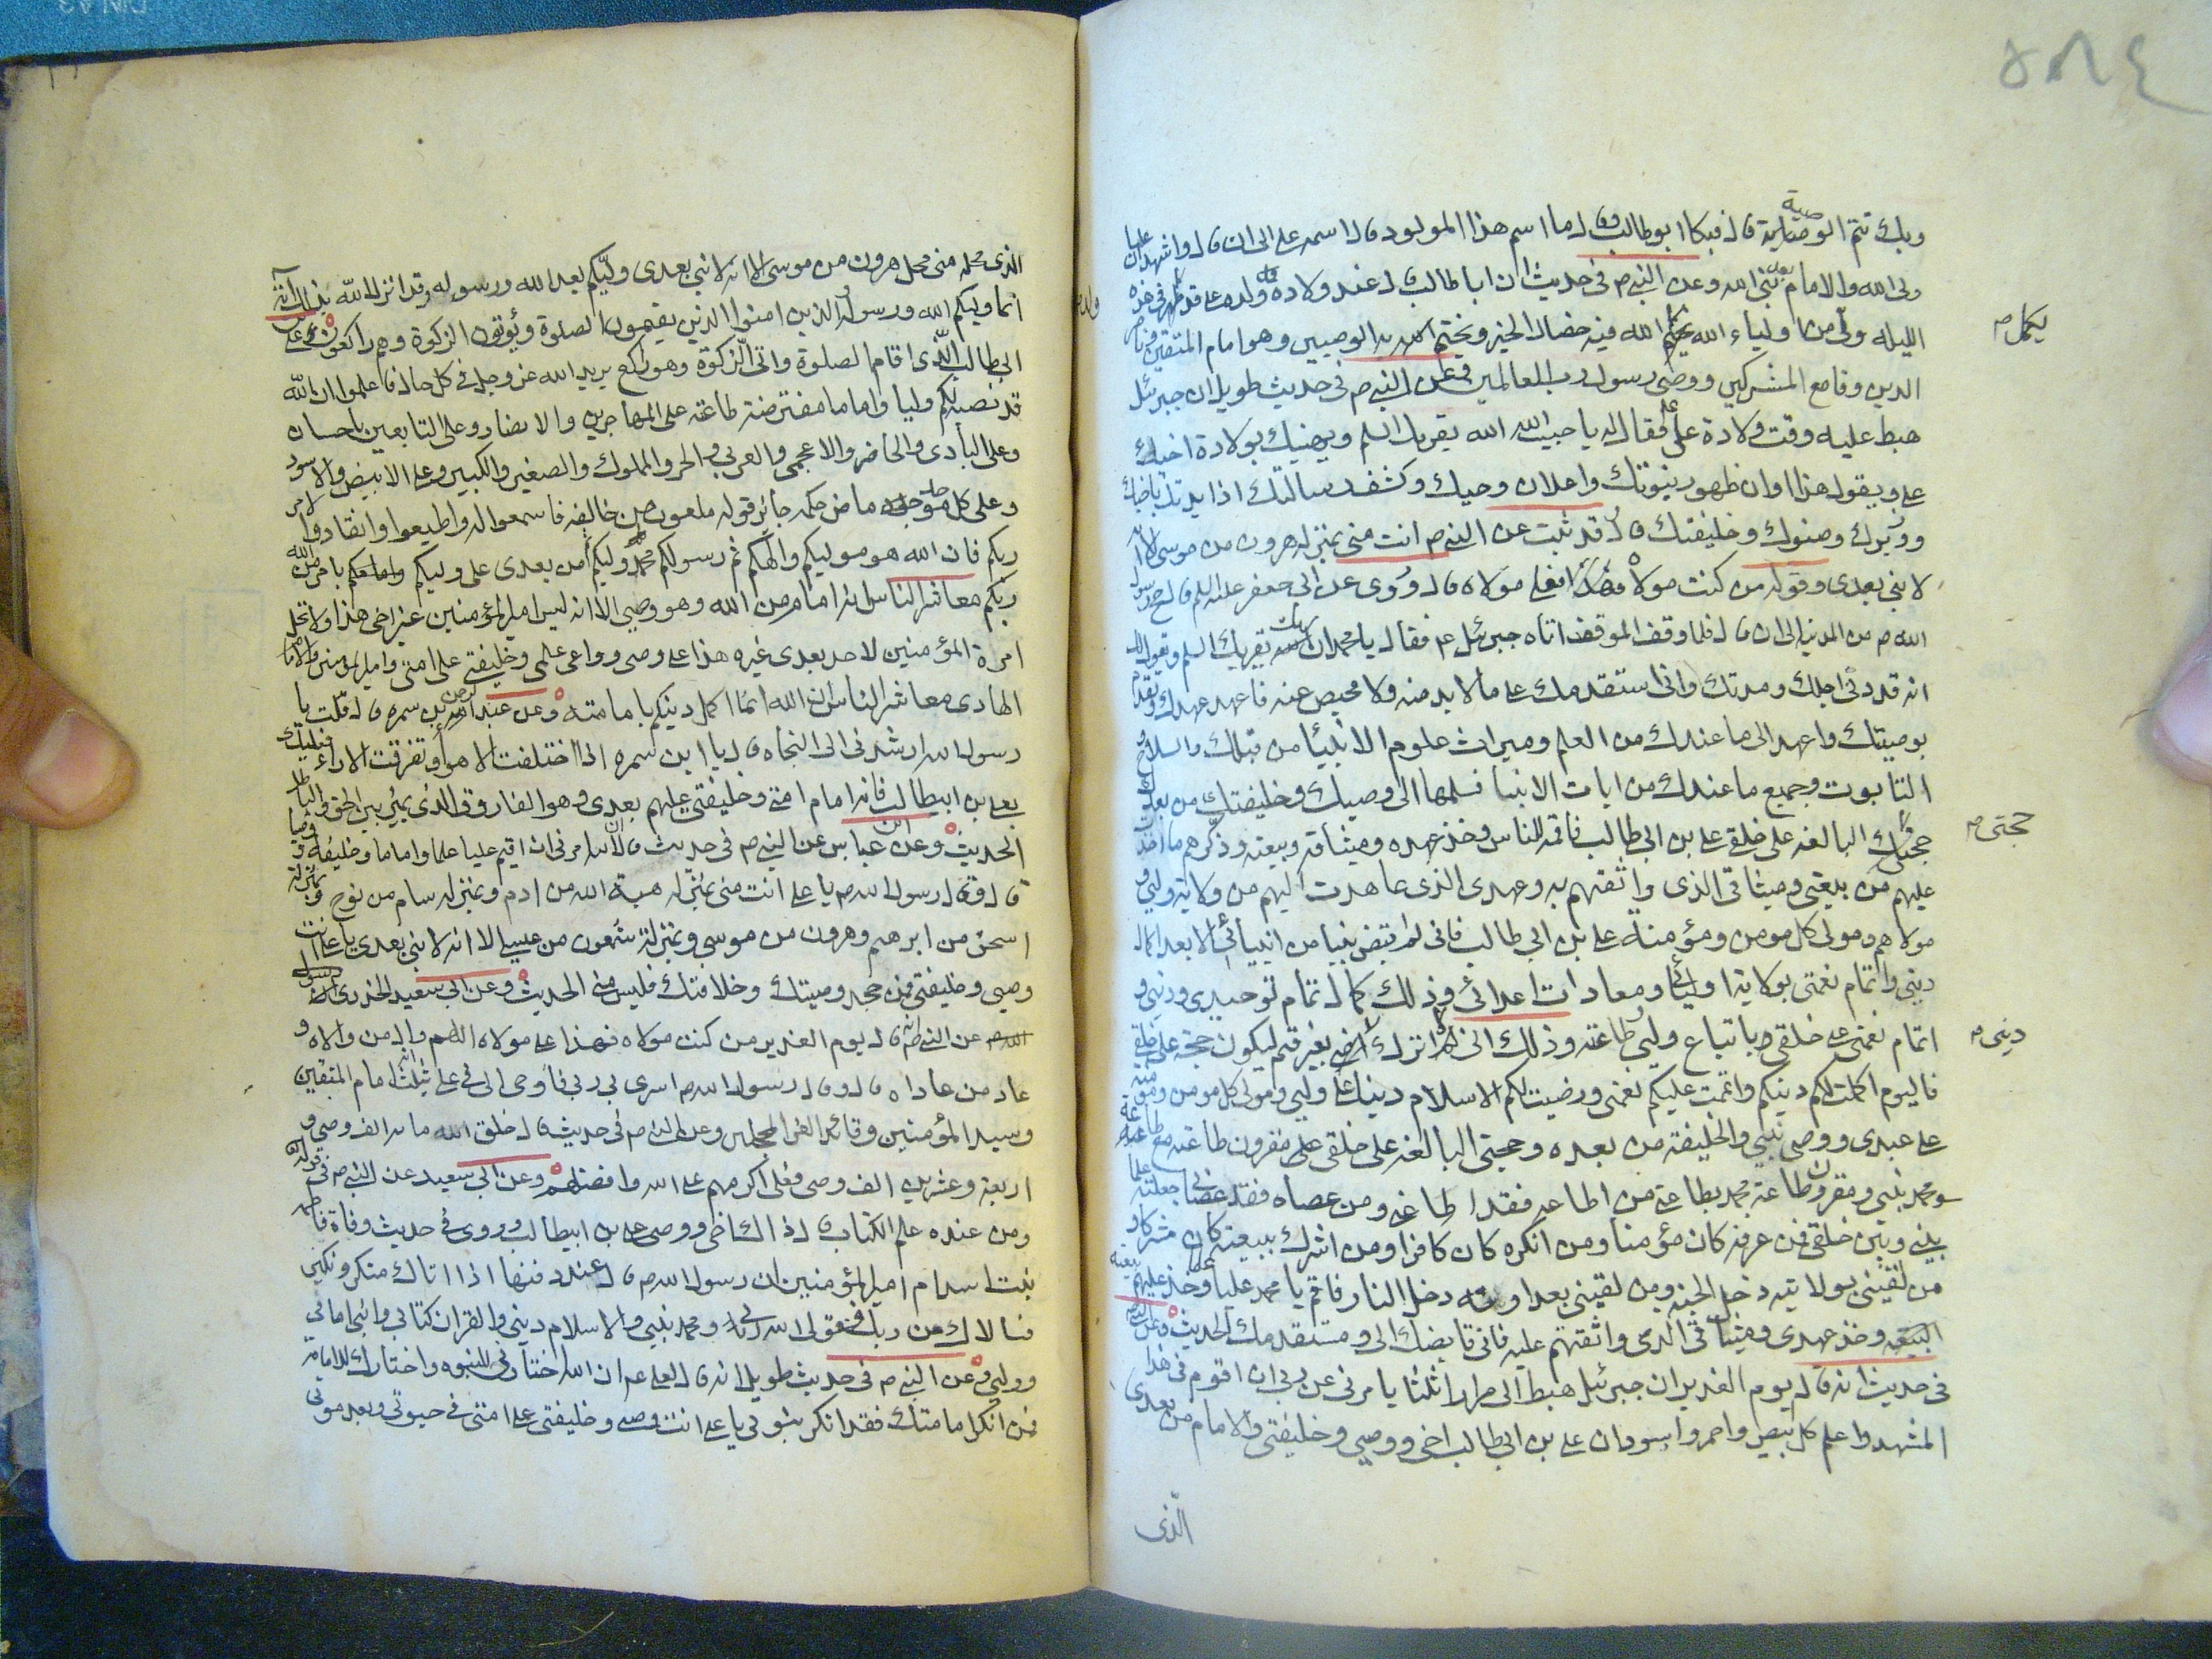 وبك تتم الوصاية قال فبكا ابو طالب وقال ما اسم هذا المولود قال اسمه على الى ان قال واشهد ان عليا
ولى الله والامام بعد نبى الله وعن النبى ص فى حديث ان ابا طالب قال عند ولادة ولده على قد ظهر فى هذه
الليلة ولى من اولياء الله يكمل الله فيه خصال الخير ويختم الله به الوصيين وهو امام المتقين وناصر
الدين وقامع المشركين ووصى رسول رب العالمين وعن النبى ص فى حديث طويل ان جبرئيل
هبط عليه وقت ولادة على ع فقال له يا حبيب الله الله يقريك السلم ويهنيك بولادة اخيك
على ويقول هذا اوان ظهور نبوتك واعلان وحيك وكشف رسالتك اذا يدتك باخيك
ووزيرك وصنوك وخليفتك قال قد ثبت عن النبى ص انت منى بمنزلة هرون من موسى الا انه
لا نبى بعدى وقوله من كنت مولاه فعلى مولاه قال وروى عن ابى جعفر عليه السلم قال حج رسول
الله ص من المدينة الى ان قال فلما وقف الموقف اتاه جبرئيل ع فقال يا محمد ان ربك يقريك السلم ويقول لك
انه قد دنى اجلك ومدتك وانى استقدمك على ما لا بد منه ولا محيص عنه فاعهد عهدك وتقدم
بوصيتك واعهد الى ما عندك من العلم وميراث علوم الانبياء من قبلك والسلاح و
التابوت وجميع ما عندك من ايات الانبيا فسلمها الى وصيك وخليفتك من بعدك
حجتى البالغة على خلقى على بن ابى طالب فاقمه للناس وخذ عهده وميثاقه وبيعته وذكرهم ما اخذت
عليهم من بيعتى وميثاقى الذى واثقتهم به وعهدى الذى عاهدت اليهم من ولاية وليى و
مولاهم ومولى كل مومن ومؤمنة على بن ابى طالب فانى لم اقبض نبيا من انبيائى الا بعد اكمال
دينى واتمام نعمتى بولاية اوليائى ومعادات اعدائى وذلك كمال تمام توحيدى ودينى و
اتمام نعمتى على خلقى باتباع وليى وطاعته وذلك انى لا اترك ارضى بغير قيم ليكون حجة على خلقى
فاليوم اكملت لكم دينكم واتممت عليكم نعمتى ورضيت لكم الاسلام دينا على وليى ومولى كل مومن ومؤمنة
على عبدى ووصى نبيى والخليفة من بعده وحجتى البالغة على خلقى مقرون طاعته مع طاعة
محمد نبيى ومقرون طاعة محمد بطاعتى من اطاعه فقد اطاعنى ومن عصاه فقد عصانى جعلته علما
بينى وبين خلقى فمن عرفه كان مؤمنا ومن انكره كان كافرا ومن اشرك ببيعته كان مشركا و
من لقينى بولايته دخل الجنة ومن لقينى بعداوته دخل النار فاقم يا محمد عليا علما وخذ عليهم بيعته
البيعة وخذ عهدى وميثاقى الذى واثقتهم عليه فانى قابضك الى ومستقدمك الحديث وعن النبى ص
فى حديث انه قال يوم الغدير ان جبرئيل هبط الى مرارا ثلثا يامرنى عن ربى ان اقوم فى هذا
المشهد واعلم كل ابيض واحمر واسود ان على بن ابى طالب اخى ووصيى وخليفتى والامام من بعدى
الذى
يكمل ص
حجتى ص
دينى ص
الذى محله منى محل هرون من موسى الا انه لا نبى بعدى وليكم بعد الله ورسوله وقد انزل الله بذلك اية
انما وليكم الله ورسوله والذين امنوا الذين يقيمون الصلوة ويؤتون الزكوة وهم راكعون وعلى بن
ابى طالب الذى اقام الصلوة واتى الزكوة وهو راكع يريد الله عز وجل فى كل حال فاعلموا ان الله
قد نصبه لكم وليا واماما مفترضة طاعته على المهاجرين والانصار وعلى التابعين باحسان
وعلى البادى والحاضر والاعجمى والعربى والحر والمملوك والصغير والكبير وعلى الابيض والاسود
وعلى كل موحد ماض حكمه جائز قوله ملعون من خالفه فاسمعوا له واطيعوا وانقادوا لامر
ربكم فان الله هو موليكم والهكم ثم رسولكم محمد وليكم ثم من بعدى على وليكم وامامكم بامر الله
ربكم معاشر الناس انه امام من الله وهو وصيى الا انه ليس امير المؤمنين غير اخى هذا ولا تحل
امرة المؤمنين لاحد بعدى غيره هذا على وصى وواعى علمى وخليفتى على امتى وامير المؤمنين والامام
الهادى معاشر الناس ان الله انما اكمل دينكم بامامته وعن عبد الرحمن بن سمره قال قلت يا
رسول الله ارشدنى الى النجاة قال يا ابن سمره اذا اختلفت الاهواء وتفرقت الاراء فعليك
بعلى بن ابيطالب فانه امام امتى وخليفتى عليهم بعدى وهو الفاروق الذى يميز بين الحق والباطل
الحديث وعن ابن عباس عن النبى ص فى حديث قال ان الله امرنى ان اقيم عليا علما واماما وخليفة ووصيا
قال وقال رسول الله ص يا على انت منى بمنزلة هبة الله من ادم وبمنزلة سام من نوح وبمنزلة
اسحق من ابرهيم وهرون من موسى وبمنزلة شمعون من عيسى الا انه لا نبى بعدى يا على انت
وصيى وخليفتى فمن جحد وصيتك وخلافتك فليس منى الحديث وعن ابى سعيد الخدرى
عن النبى ص انه قال يوم الغدير من كنت مولاه فهذا على مولاه اللهم وال من والاه و
عاد من عاداه قال وقال رسول الله ص اسرى بى ربى فاوحى الى فى على بثلث انه امام المتقين
وسيد المؤمنين وقائد الغر المحجلين وعن النبى ص فى حديث قال خلق الله مائة الف وصى و
اربعة وعشرين الف وصى فعلى اكرمهم على الله وافضلهم وعن ابى سعيد عن النبى ص فى قوله
ومن عنده علم الكتاب قال ذاك اخى ووصيى على بن ابيطالب وروى فى حديث وفاة فاطمة
بنت اسد ام امير المؤمنين ان رسول الله ص قال عند دفنها اذا اتاك منكر ونكير
فسالاك من ربك فقولى الله ربى ومحمد نبيى والاسلام دينى والقران كتابى وابنى امامى
ووليى وعن النبى ص فى حديث طويل انه قال لعلى ع ان الله اختارنى للنبوه واختارك للامامة
فمن انكر امامتك فقد انكر نبوتى يا على انت وصى وخليفتى على امتى فى حيوتى وبعد موتى